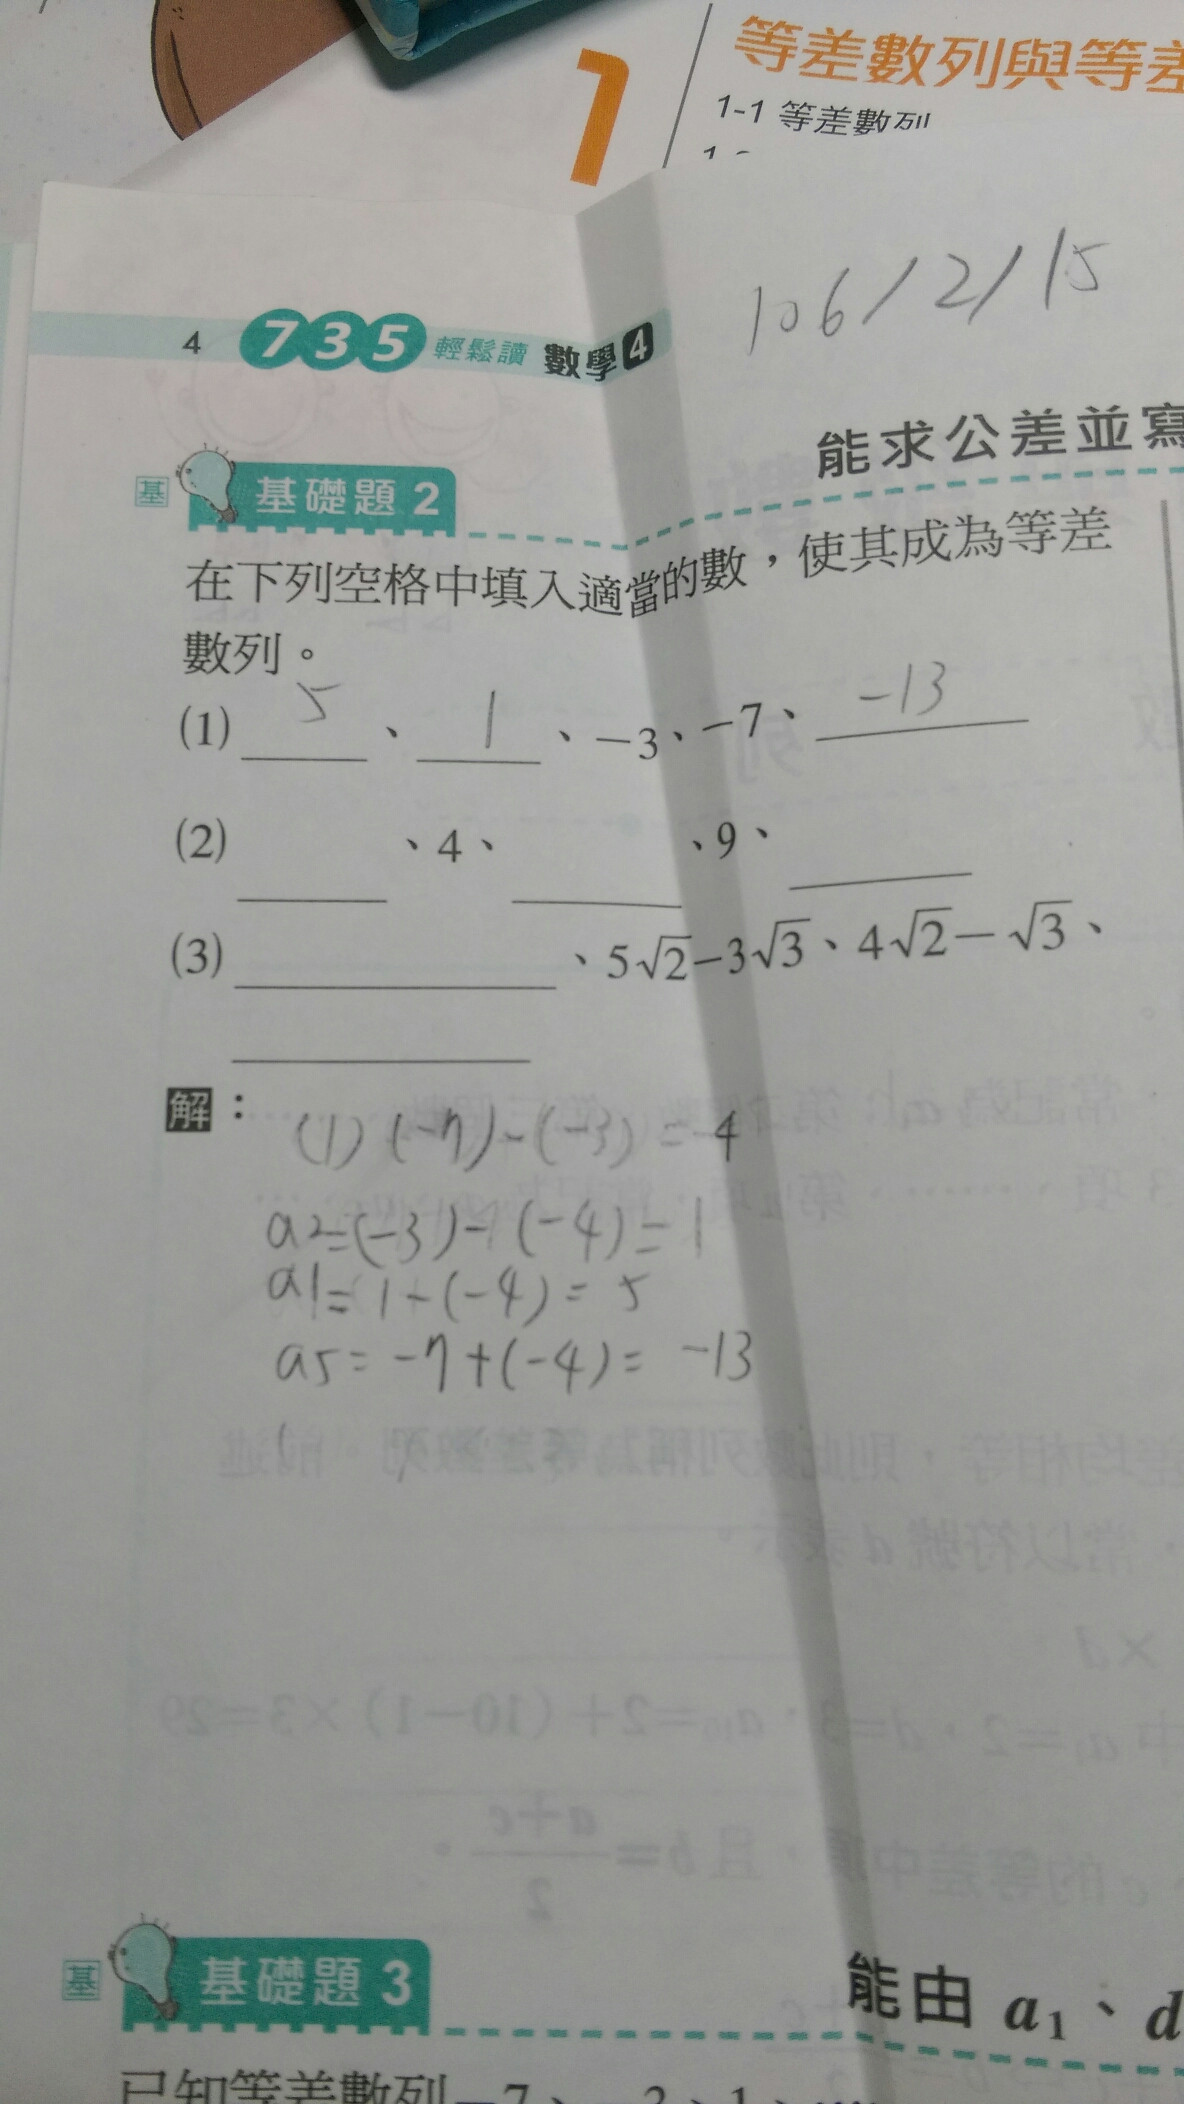 1 等差數列與等差
1-1 等差數列
106/2/15
4 735 輕鬆讀 數學4
能求公差並寫
基 基礎題2
在下列空格中填入適當的數，使其成為等差
數列。
(1) 5 、 1 、-3、-7、 -13
(2) ____ 、4、 ____ 、9、 ____
(3) ____ 、5√2-3√3、4√2-√3、
____
解：
(1) (-7)-(-3)=-4
a2=(-3)-(-4)=1
a1=1-(-4)=5
a5=-7+(-4)=-13
基 基礎題3
能由 a₁、d
已知等差數列-7、-3、1、…